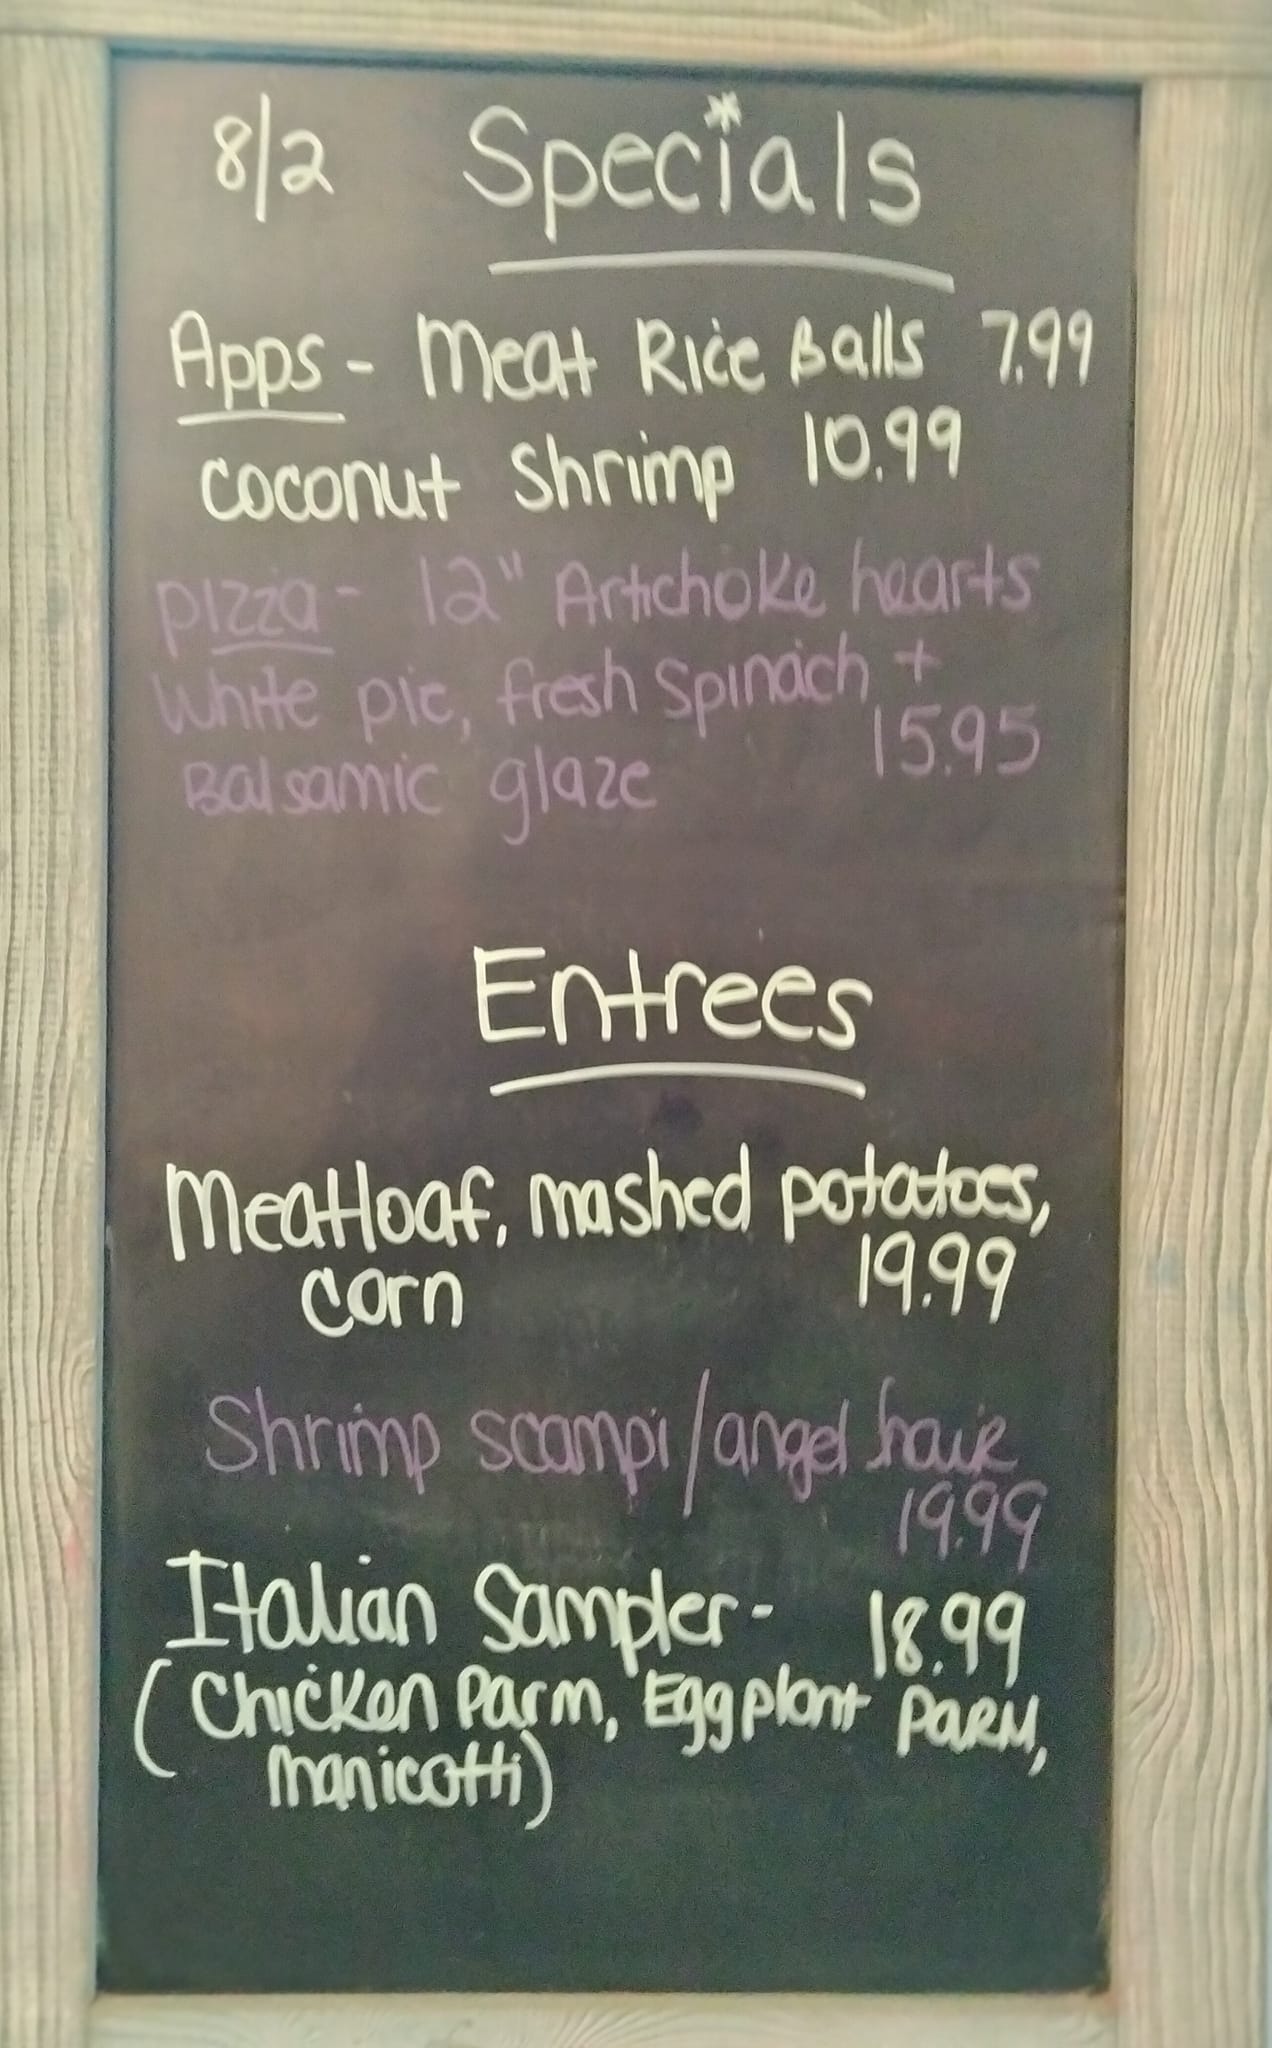 8/2 Specials
Apps - Meat Rice Balls 7.99
Coconut Shrimp 10.99
pizza - 12" Artichoke hearts
White pie, fresh Spinach +
Balsamic glaze 15.95
Entrees
Meatloaf, mashed potatoes,
corn 19.99
Shrimp scampi/angel hair
19.99
Italian Sampler - 18.99
(Chicken Parm, Eggplant PARM,
manicotti)